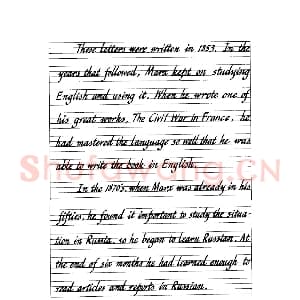 These letters were written in 1853. In the
years that followed, Marx kept on studying
English and using it. When he wrote one of
his great works, The Civil War in France, he
had mastered the language so well that he was
able to write the book in English.
In the 1870's, when Marx was already in his
fifties, he found it important to study the situa-
tion in Russia, so he began to learn Russian. At
the end of six months he had learned enough to
read articles and reports in Russian.